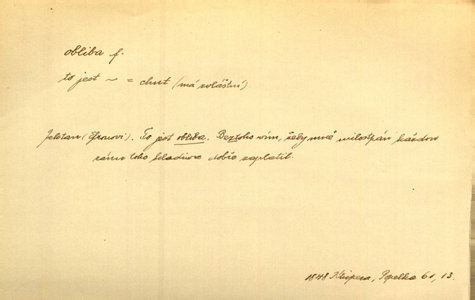 obliba f.
to jest ~ = chut (má zvláštní)
To jest obliba. Beztoho vím, žeby mně milostpán každou
ránu toho kladiva dobře zaplatil.
1848 Klicpera, Popelka 61, 13.